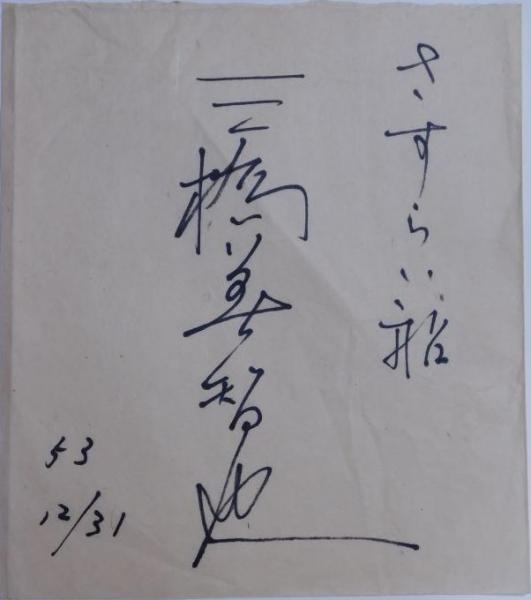 さすらい船
三橋美智也
53
12/31